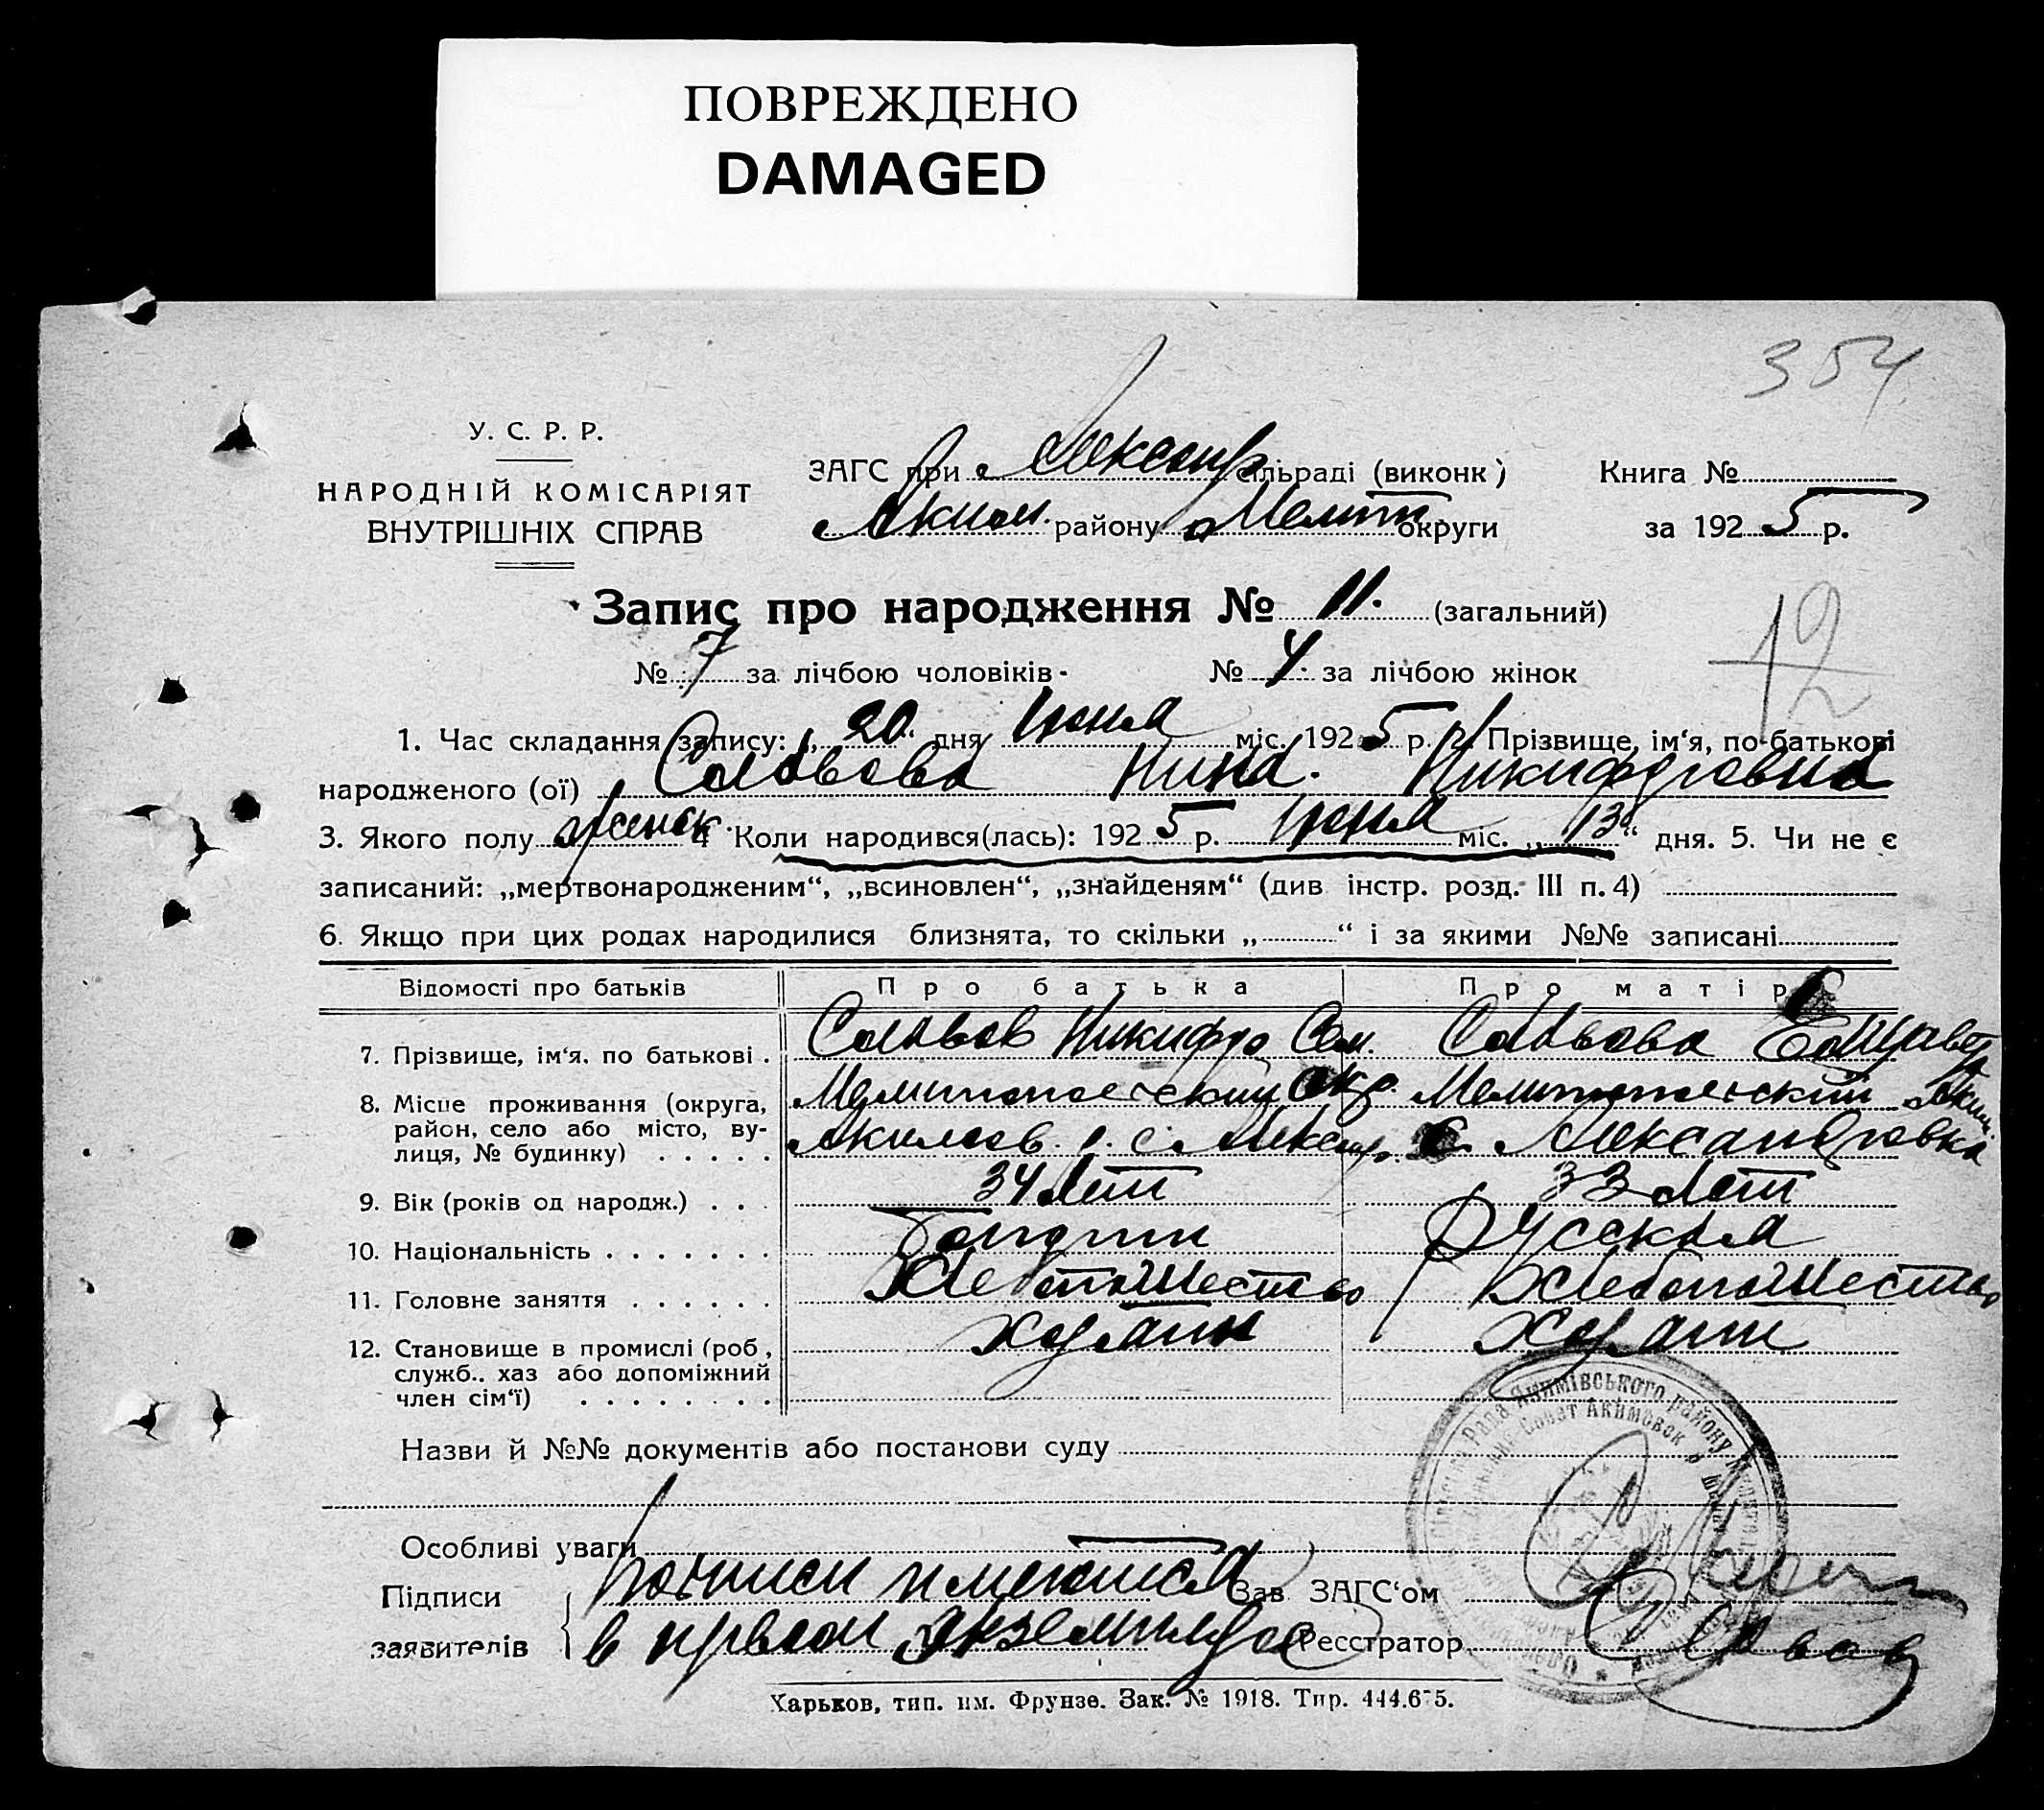 ПОВРЕЖДЕНО
DAMAGED
354
У. С. Р. Р.
НАРОДНІЙ КОМІСАРІЯТ
ВНУТРІШНІХ СПРАВ
ЗАГС при Александр сільраді (виконк)
Аким. району Мелит округи
Книга №
за 1925 р.
Запис про народження № 11. (загальний)
12
№ 7 за лічбою чоловіків - № 4. за лічбою жінок
1. Час складання запису: „20“ дня Июня міс. 1925 р. 2. Прізвище, ім‘я, по-батькові
народженого (ої) Соловьова Нина. Никифоровна
3. Якого полу женск. 4 Коли народився(лась): 1925 р. Июня міс. „13“ дня. 5. Чи не є
записаний: „мертвонародженим“, „всиновлен“, „знайденям“ (див інстр. розд. III п. 4)
6. Якщо при цих родах народилися близнята, то скільки „ “ і за якими №№ записані
Відомості про батьків Про батька Про матір
7. Прізвище, ім‘я, по батькові . Соловьов Никифор Сем. Соловьова Елизавет
8. Місце проживання (округа, Мелитопольский Окр. Мелитопольский Аким.
район, село або місто, ву- Акимов. р. с. Александр. с. Александровка
лиця, № будинку) . . . . .
9. Вік (років од народж.) . . . 34 лет 33 лет
10. Національність . . . . . . . Русская
11. Головне заняття . . . . . . Хлебопашество Хлебопашество
12. Становище в промислі (роб,
служб.. хаз або допоміжний
член сім‘ї) . . . . . . . .
Назви й №№ документів або постанови суду
Особливі уваги
Підписи Подписи имеются Зав ЗАГС‘ом
заявителів в первом экземпляре Реєстратор
Рада Якимівського району
Совет Акимовск
Харьков, тип. им. Фрунзе. Зак. № 1918. Тир. 444.675.